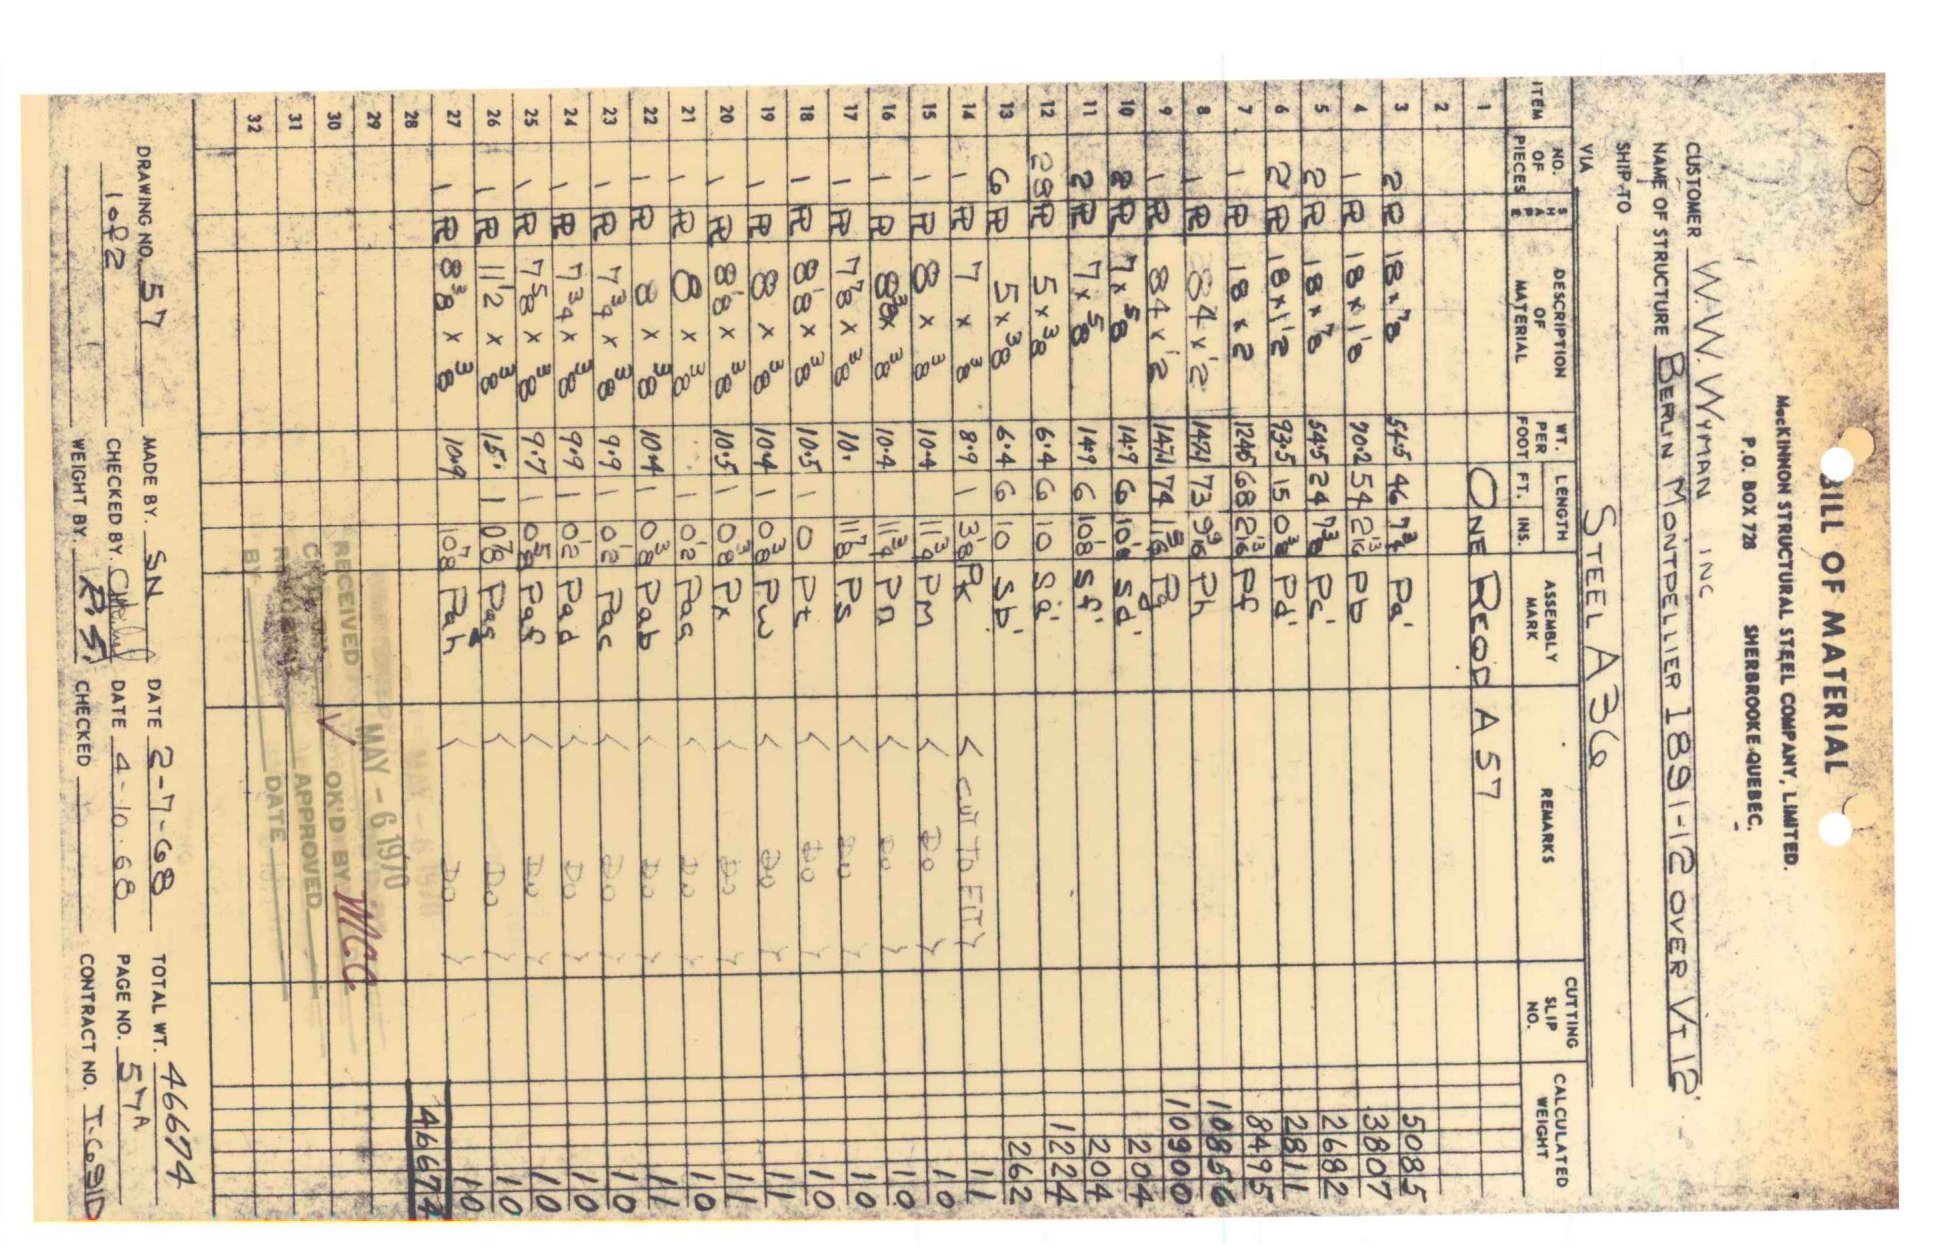 BILL OF MATERIAL
MacKINNON STRUCTURAL STEEL COMPANY, LIMITED.
P.O. BOX 728 SHERBROOKE-QUEBEC.
CUSTOMER W.W. WYMAN INC
NAME OF STRUCTURE BERLIN MONTPELLIER 1891-12 OVER VT 12
SHIP-TO
VIA STEEL A36
ITEM NO. OF PIECES SHAPE DESCRIPTION OF MATERIAL WT. PER FOOT LENGTH FT. INS. ASSEMBLY MARK REMARKS CUTTING SLIP NO. CALCULATED WEIGHT
1 ONE REQD A57
2
3 2 PL 18 x 7/8 54.5 46 7 3/4 Pa' 5085
4 1 PL 18 x 1 1/8 70.2 54 2 13/16 Pb 3807
5 2 PL 18 x 7/8 54.5 24 7 3/8 Pc' 2682
6 2 PL 18 x 1 1/2 93.5 15 0 3/8 Pd' 2811
7 1 PL 18 x 2 124.5 68 2 13/16 Pf 8495
8 1 PL 84 x 1/2 147.1 73 9 9/16 Ph 10856
9 1 PL 84 x 1/2 147.1 74 1 5/16 Pg 10900
10 2 PL 7 x 5/8 14.9 6 10 1/8 Sd' 204
11 2 PL 7 x 5/8 14.9 6 10 1/8 Sf' 204
12 28 PL 5 x 3/8 6.4 6 10 Sa' 1224
13 6 PL 5 x 3/8 6.4 6 10 Sb' 262
14 1 PL 7 x 3/8 8.9 1 3 1/8 Pk < CUT TO FIT > 11
15 1 PL 8 x 3/8 10.4 11 3/4 PM < Do > 10
16 1 PL 8 3/8 x 3/8 10.4 11 3/4 Pn < Do > 10
17 1 PL 7 7/8 x 3/8 10. 11 7/8 Ps < Do > 10
18 1 PL 8 1/8 x 3/8 10.5 1 0 Pt < Do > 10
19 1 PL 8 x 3/8 10.4 1 0 3/8 Pw < Do > 11
20 1 PL 8 1/8 x 3/8 10.5 1 0 3/8 Px < Do > 11
21 1 PL 8 x 3/8 1 0 1/2 Paa < Do > 10
22 1 PL 8 x 3/8 10.4 1 0 3/8 Pab < Do > 11
23 1 PL 7 3/4 x 3/8 9.9 1 0 1/2 Pac < Do > 10
24 1 PL 7 3/4 x 3/8 9.9 1 0 1/2 Pad < Do > 10
25 1 PL 7 5/8 x 3/8 9.7 1 0 5/8 Paf < Do > 10
26 1 PL 11 1/2 x 3/8 15. 1 0 7/8 Pag < Do > 10
27 1 PL 8 3/8 x 3/8 10.9 10 7/8 Pah < Do > 10
28 46674
29
30
31
32
RECEIVED MAY - 6 1970
OK'D BY MCC
APPROVED
BY DATE
DRAWING NO. 57 MADE BY. SN DATE 2-7-68 TOTAL WT. 46674
1 of 2 CHECKED BY. DATE 4-10-68 PAGE NO. 57A
WEIGHT BY. R.S. CHECKED CONTRACT NO. T-691D